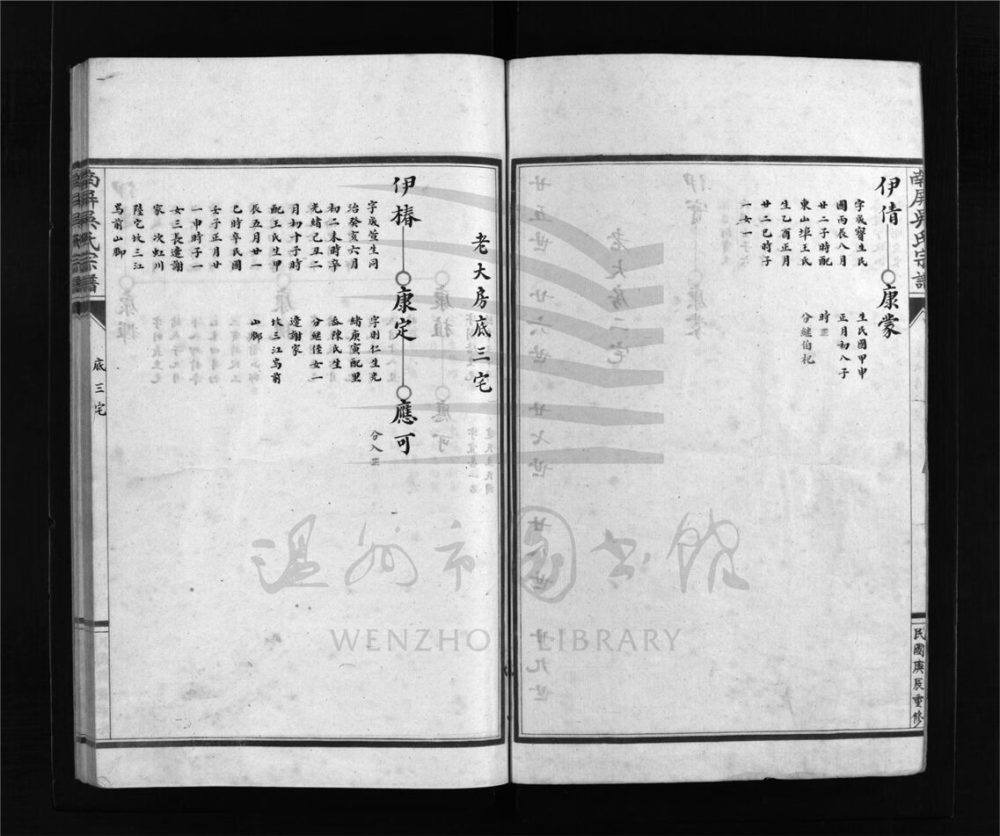 南屏吳氏宗譜
民國庚辰重修
伊倩
康蒙
字成賓生民
國丙辰八月
廿二子時配
東山埠王氏
生乙酉正月
廿二巳時子
一女一
生民國甲申
正月初八子
時
分繼伯杞
老大房底三宅
伊椿
康定
應可
字成萱生同
治癸亥六月
初二未時卒
光緒己丑二
月初十子時
配王氏生甲
辰五月廿一
巳時卒民國
壬子正月廿
一申時子一
女三長適謝
家 次虹川
陸宅坟三江
馬前山腳
字則仁生光
緒庚寅配里
岙陳氏生
分繼侄女一
適謝家
坟三江馬前
山腳
分入
南屏吳氏宗譜
底三宅
温州市图书馆
WENZHOU LIBRARY